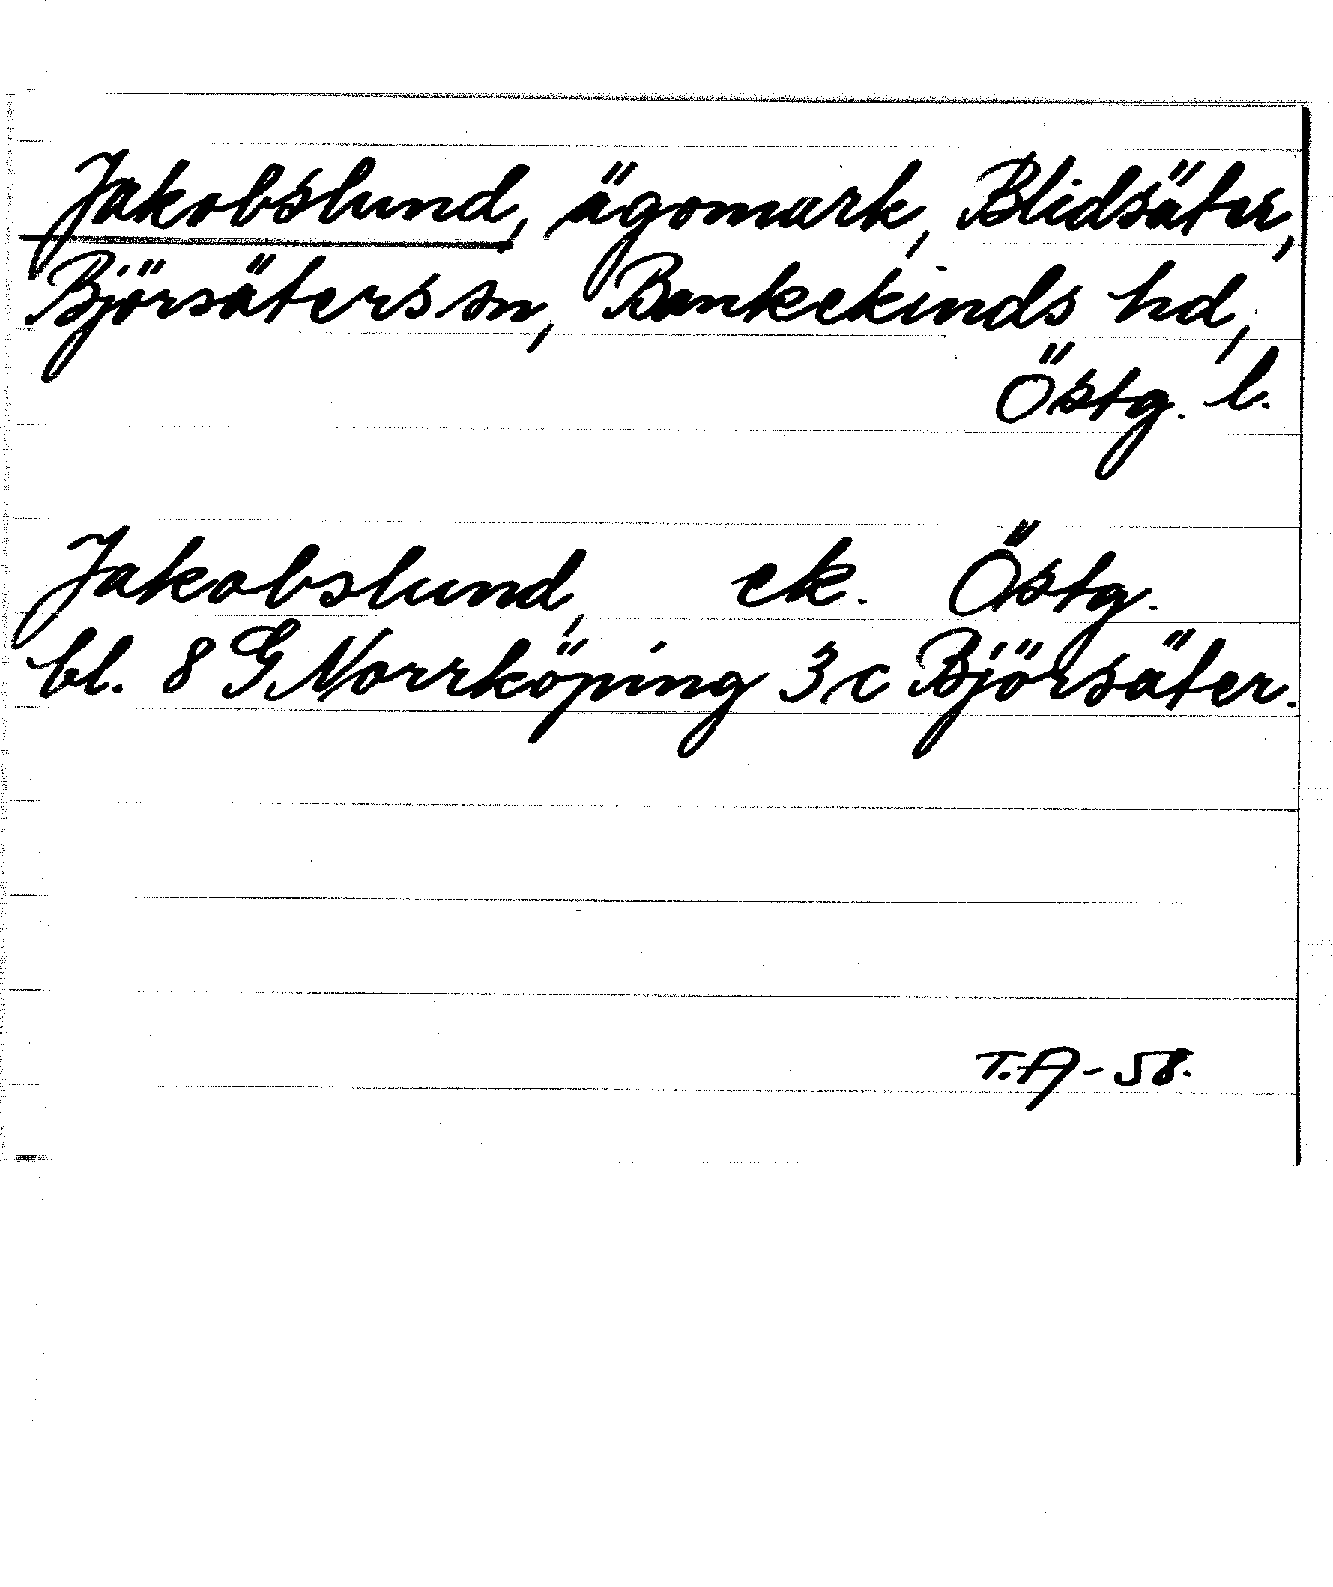 Jakobslund, ägomark, Blidsäter,
Björsäters sn, Bankekinds hd,
Östg. l.
Jakobslund, ek. Östg.
bl. 8 G Norrköping 3 c Björsäter.
T.A-58.